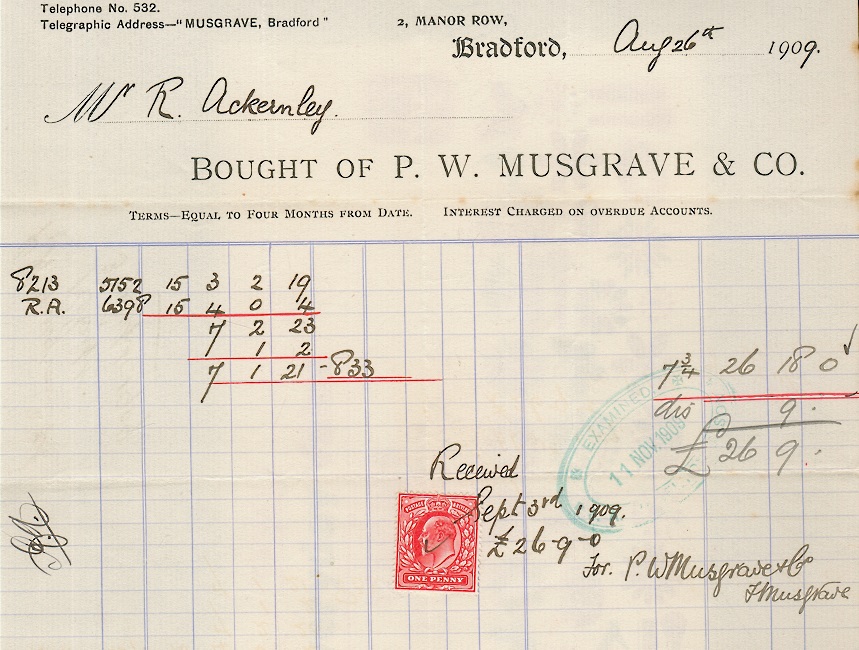 Telephone No. 532.
Telegraphic Address—"MUSGRAVE, Bradford"
2, MANOR ROW,
Bradford, Aug 26th 1909.
Mr R. Ackernley.
BOUGHT OF P. W. MUSGRAVE & CO.
TERMS—EQUAL TO FOUR MONTHS FROM DATE. INTEREST CHARGED ON OVERDUE ACCOUNTS.
8213 5152 15 3 2 19
R.A. 6398 15 4 0 4
7 2 23
1 2
7 1 21 - 833 7¾ 26 18 0
dis 9 .
£ 26 9 .
EXAMINED
11 NOV 1909
Received
Sept 3rd 1909.
£26-9-0
POSTAGE REVENUE
ONE PENNY
For. P. W Musgrave & Co
F Musgrave